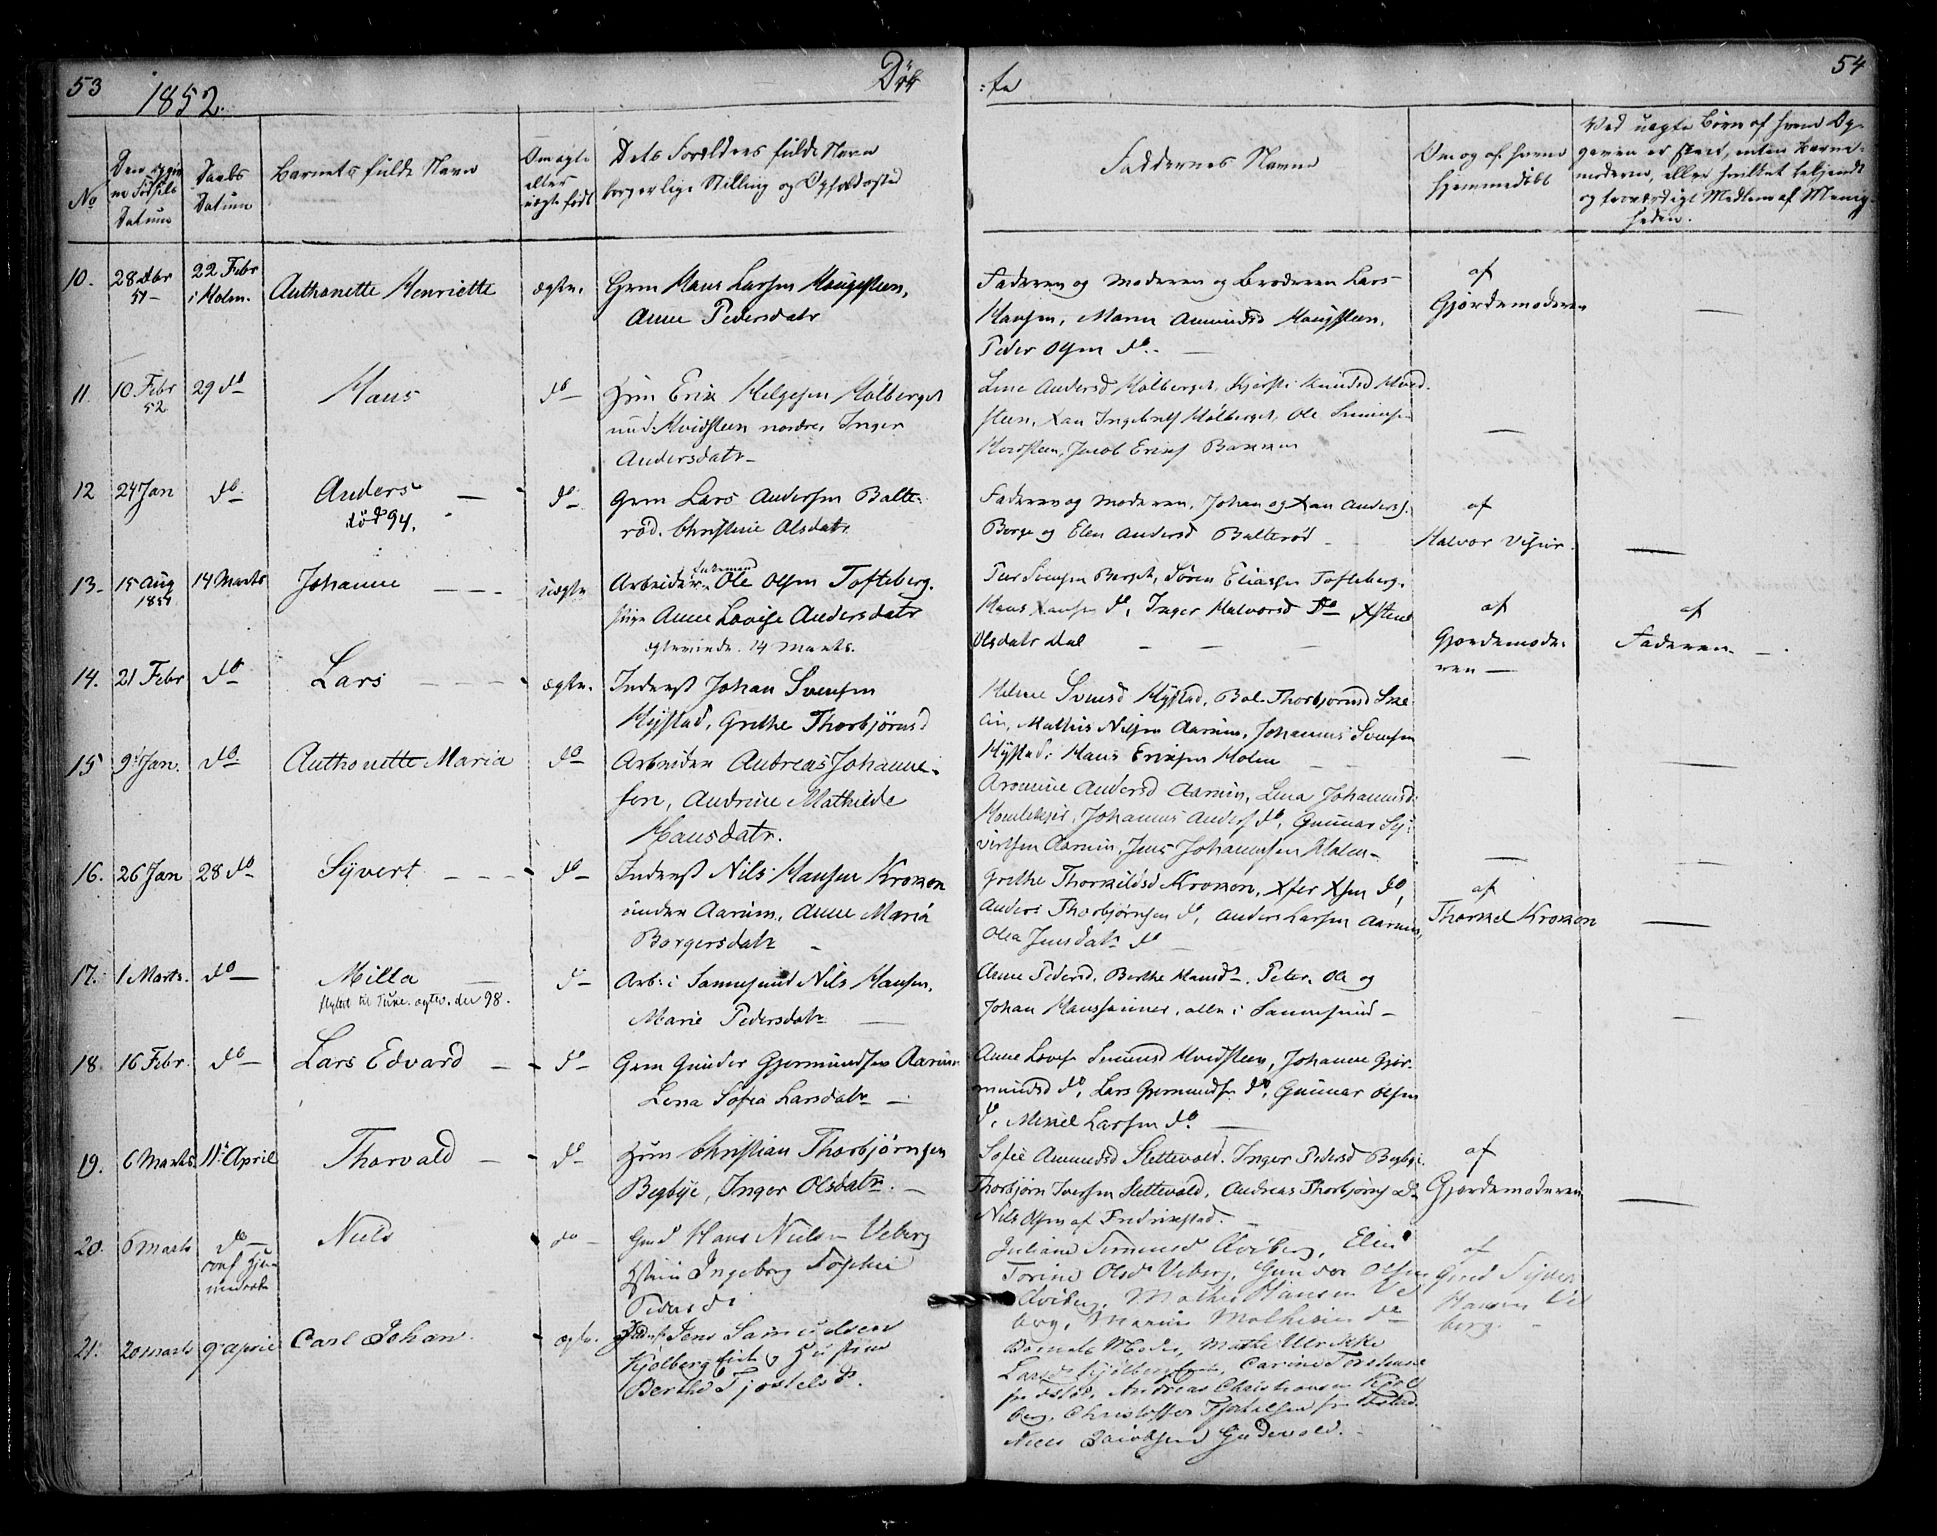 53
1852.
Döb
:te
54
No
Den egen
Datum
Daabs
Datum
Barnets fulde Navn
Om ægte
eller
uægte født
Dets Forældres fulde Navn
borgerlige Stilling og Opholdssted
Faddernes Navne
Om og af hvem
hjemmedøbt
Ved uægte Børn af hvem Op-
givelsen er skeet, enten Barne-
moderen, eller hvilket bekjendt
og troværdigt Medlem af Menig-
heden.
10. 28 Dbr 22 Febr Anthonette Henriette ægte. Grm Hans Larsen Haugsteen,
51 i Holm.
Anne Pedersdatr
Faderen og Moderen og Broderen Lars
Hansen, Maren Amundsd Haugsteen,
Peder Olsen do.
af
Gjordemoderen
11. 10 Febr 29 do Hans do Hum Erik Helgesen Hølberget
52
und. Hvidsteen nordre, Inger
Andersdatr
Line Andersd Hølberget, Kjersti Knudsd Hvid
steen, Xan Hølberget, Ole Simensen
Hvidsteen, Jacob Erikss Bakken
12 24 Jan do Anders do Grm Lars Andersen Balte-
død 94.
rød. Christine Olsdatr
Faderen og Moderen, Johan og Xan Anderss.
Borge og Elen Andersd Balterød
af
Halvor
13. 15 Aug 14 Marts Johanne uægte Arbeider Ole Olsen Tofteberg.
1851
Pige Anne Lovise Andersdatr
ægteviede 14 Marts.
Peer Svensen Berget, Søren Eliassen Tofteberg,
Hans Xansen do, Inger Halvorsd do
Olsdatr Dal
af
Gjordemode-
ren
af
Faderen
14. 21 Febr do Lars ægte. Inderst Johan Svensen
Hystad, Grethe Thorbjørnsd
Helene Svensd Hystad, Thorbjørnsd
Mathis Nilsen Aarum, Johannes Svensen
Hystad, Hans Eriksen Holm
15 9 Jan. do Anthonette Maria do Arbeider Andreas Johanne-
sen, Andrine Mathilde
Hansdatr.
Andersd Aarum, Lena Johannesd
Johannes Anders do, Gunnar Sy-
vertsen Aarum, Jens Johannsen Holm
16. 26 Jan 28 do Syvert do Inderst Nils Hansen Krokon
under Aarum, Anne Maria
Borgersdatr
Grethe Thorkildsd Krokon, Xfer Xsen do,
Anders Thorbjørnsen do, Anders Larsen Aarum,
Olea Jensdatr do
af
Thorkel Krokon
17. 1 Marts. do Milla d Arb: i Sannesund Nils Hansen,
flyttet til Tune. ægtev. der 98.
Marie Pedersdatr
Anne Pedersd, Berthe Hansdr, Peter, Ole og
Johan Hanssønner, alle i Sannesund
18. 16 Febr do Lars Edvard do Grm Gunder Gjermundsen Aarum
Lena Sofia Larsdatr
Anne Lovise Simensd Hvidsteen, Johanne Gjer-
mundsd do, Lars Gjermundsen do, Gunnar Olsen
do, Mikel Larsen do.
19. 6 Marts 11 April Thorvald do Hum Christian Thorbjørnsen
Begbye, Inger Olsdatr.
Sofie Amundsd Slettevold, Inger Pedersd Begbye,
Thorbjørn Iversen Slettevold, Andreas Thorbjørns do
Nils Olsen af Fredrikstad.
af
Gjordemoderen
20. 6 Marts do Niels do Gmd Hans Nielsen Veberg
Hustru Ingeborg Sophie
Peders d
Juliane Simensd Elen
Torine Olsd Veberg, Gunder Olsen
Mathis Hansen Ve
berg, Marie Mathisen do
af
Gmd Syver
Hansen Ve
berg.
21. 20 marts 9 april Carl Johan ægte. Inderst Jens Samuelsen
Kjølberg Eie og Hustru
Berthe Fjostels D.
Barnets Moder, Mathe Ulrikke
Larsd Kjølberg Carine
Andreas Christiansen Kjøl
berg, Christoffer
Niels Jacobsen Gudevold.